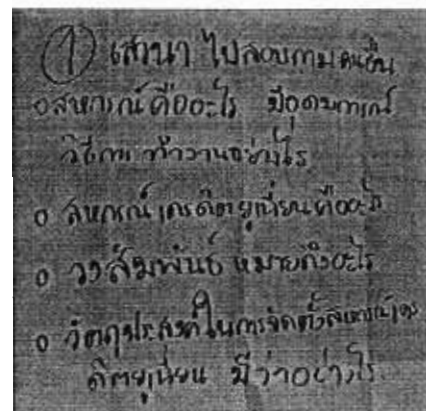 ① เสวนา ไปสอบถามคนอื่น
o สหกรณ์คืออะไร มีอุดมการณ์
วิธีการทำงานอย่างไร
o สหกรณ์เครดิตยูเนี่ยนคืออะไร
o วงสัมพันธ์ หมายถึงอะไร
o วัตถุประสงค์ในการจัดตั้งสหกรณ์เคร
ดิตยูเนี่ยน มีว่าอย่างไร